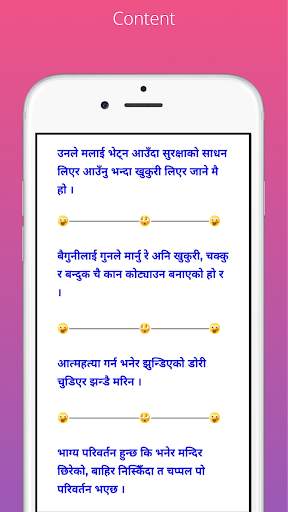 Content
उनले मलाई भेट्न आउँदा सुरक्षाको साधन
लिएर आउँनु भन्दा खुकुरी लिएर जाने मै
हो ।
बैगुनीलाई गुनले मार्नु रे अनि खुकुरी, चक्कु
र बन्दुक चै कान कोट्याउन बनाएको हो र
।
आत्महत्या गर्न भनेर झुन्डिएको डोरी
चुडिएर झन्डै मरिन ।
भाग्य परिवर्तन हुन्छ कि भनेर मन्दिर
छिरेको, बाहिर निस्किँदा त चप्पल पो
परिवर्तन भएछ ।